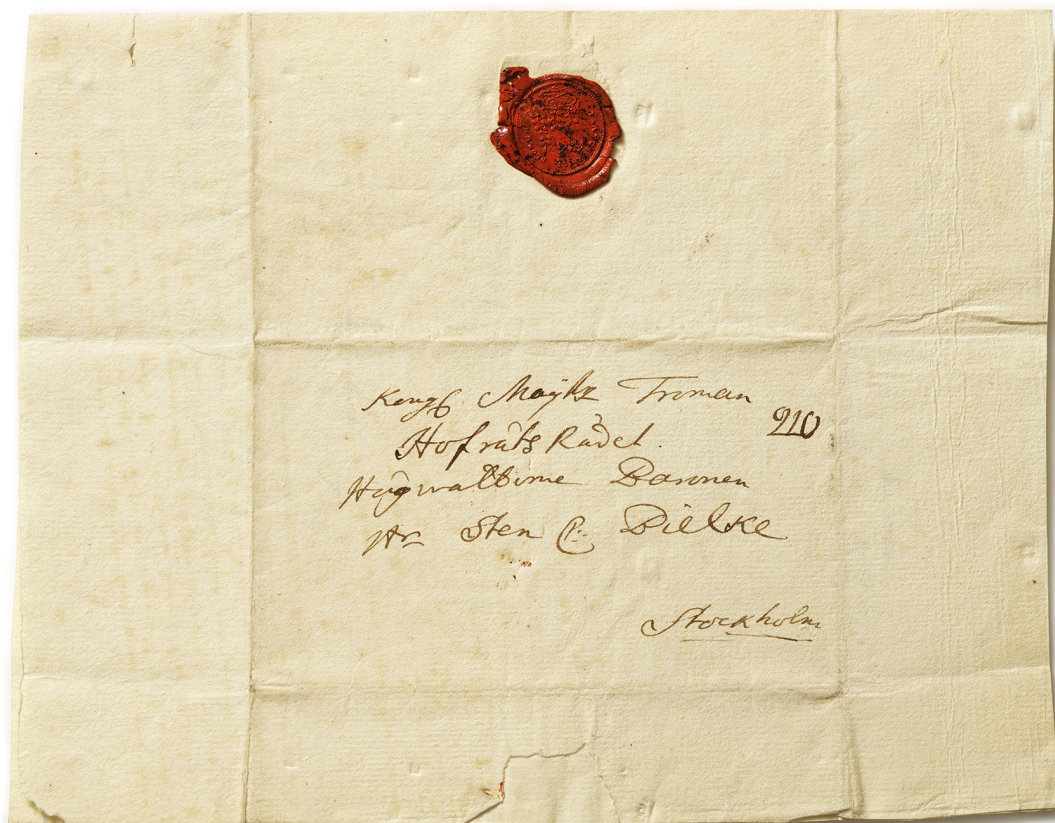 Kongl. Maÿtz Troman
210
Hofråts Rådet.
Högwälborne Baronen
Hr Sten C: Bielke
Stockholm